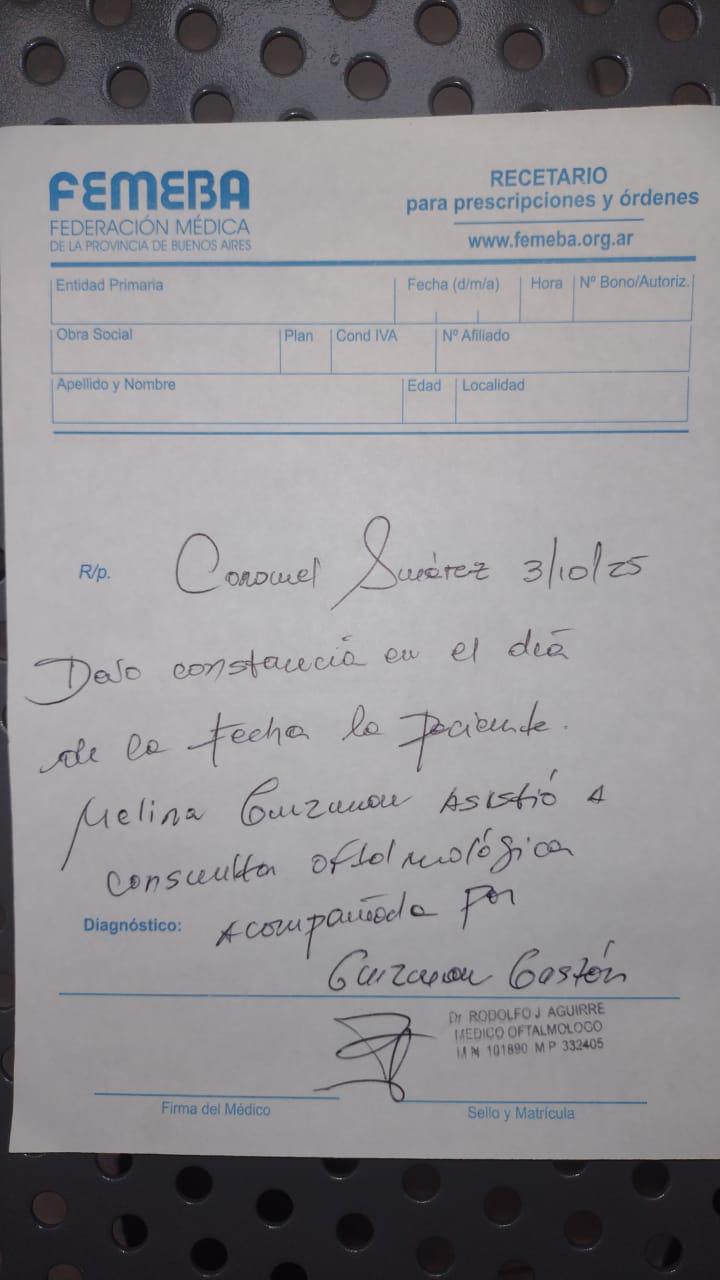 FEMEBA
FEDERACIÓN MÉDICA
DE LA PROVINCIA DE BUENOS AIRES
RECETARIO
para prescripciones y órdenes
www.femeba.org.ar
Entidad Primaria Fecha (d/m/a) Hora Nº Bono/Autoriz.
Obra Social Plan Cond IVA Nº Afiliado
Apellido y Nombre Edad Edad Localidad
R/p. Coronel Suárez 3/10/25
Dejo constancia en el día
de la fecha la paciente.
Melina Guzman asistió a
consulta oftalmológica
Diagnóstico: Acompañada por
Guzman Gastón
Dr RODOLFO J AGUIRRE
MEDICO OFTALMOLOGO
M N 101890 M P 332405
Firma del Médico Sello y Matrícula